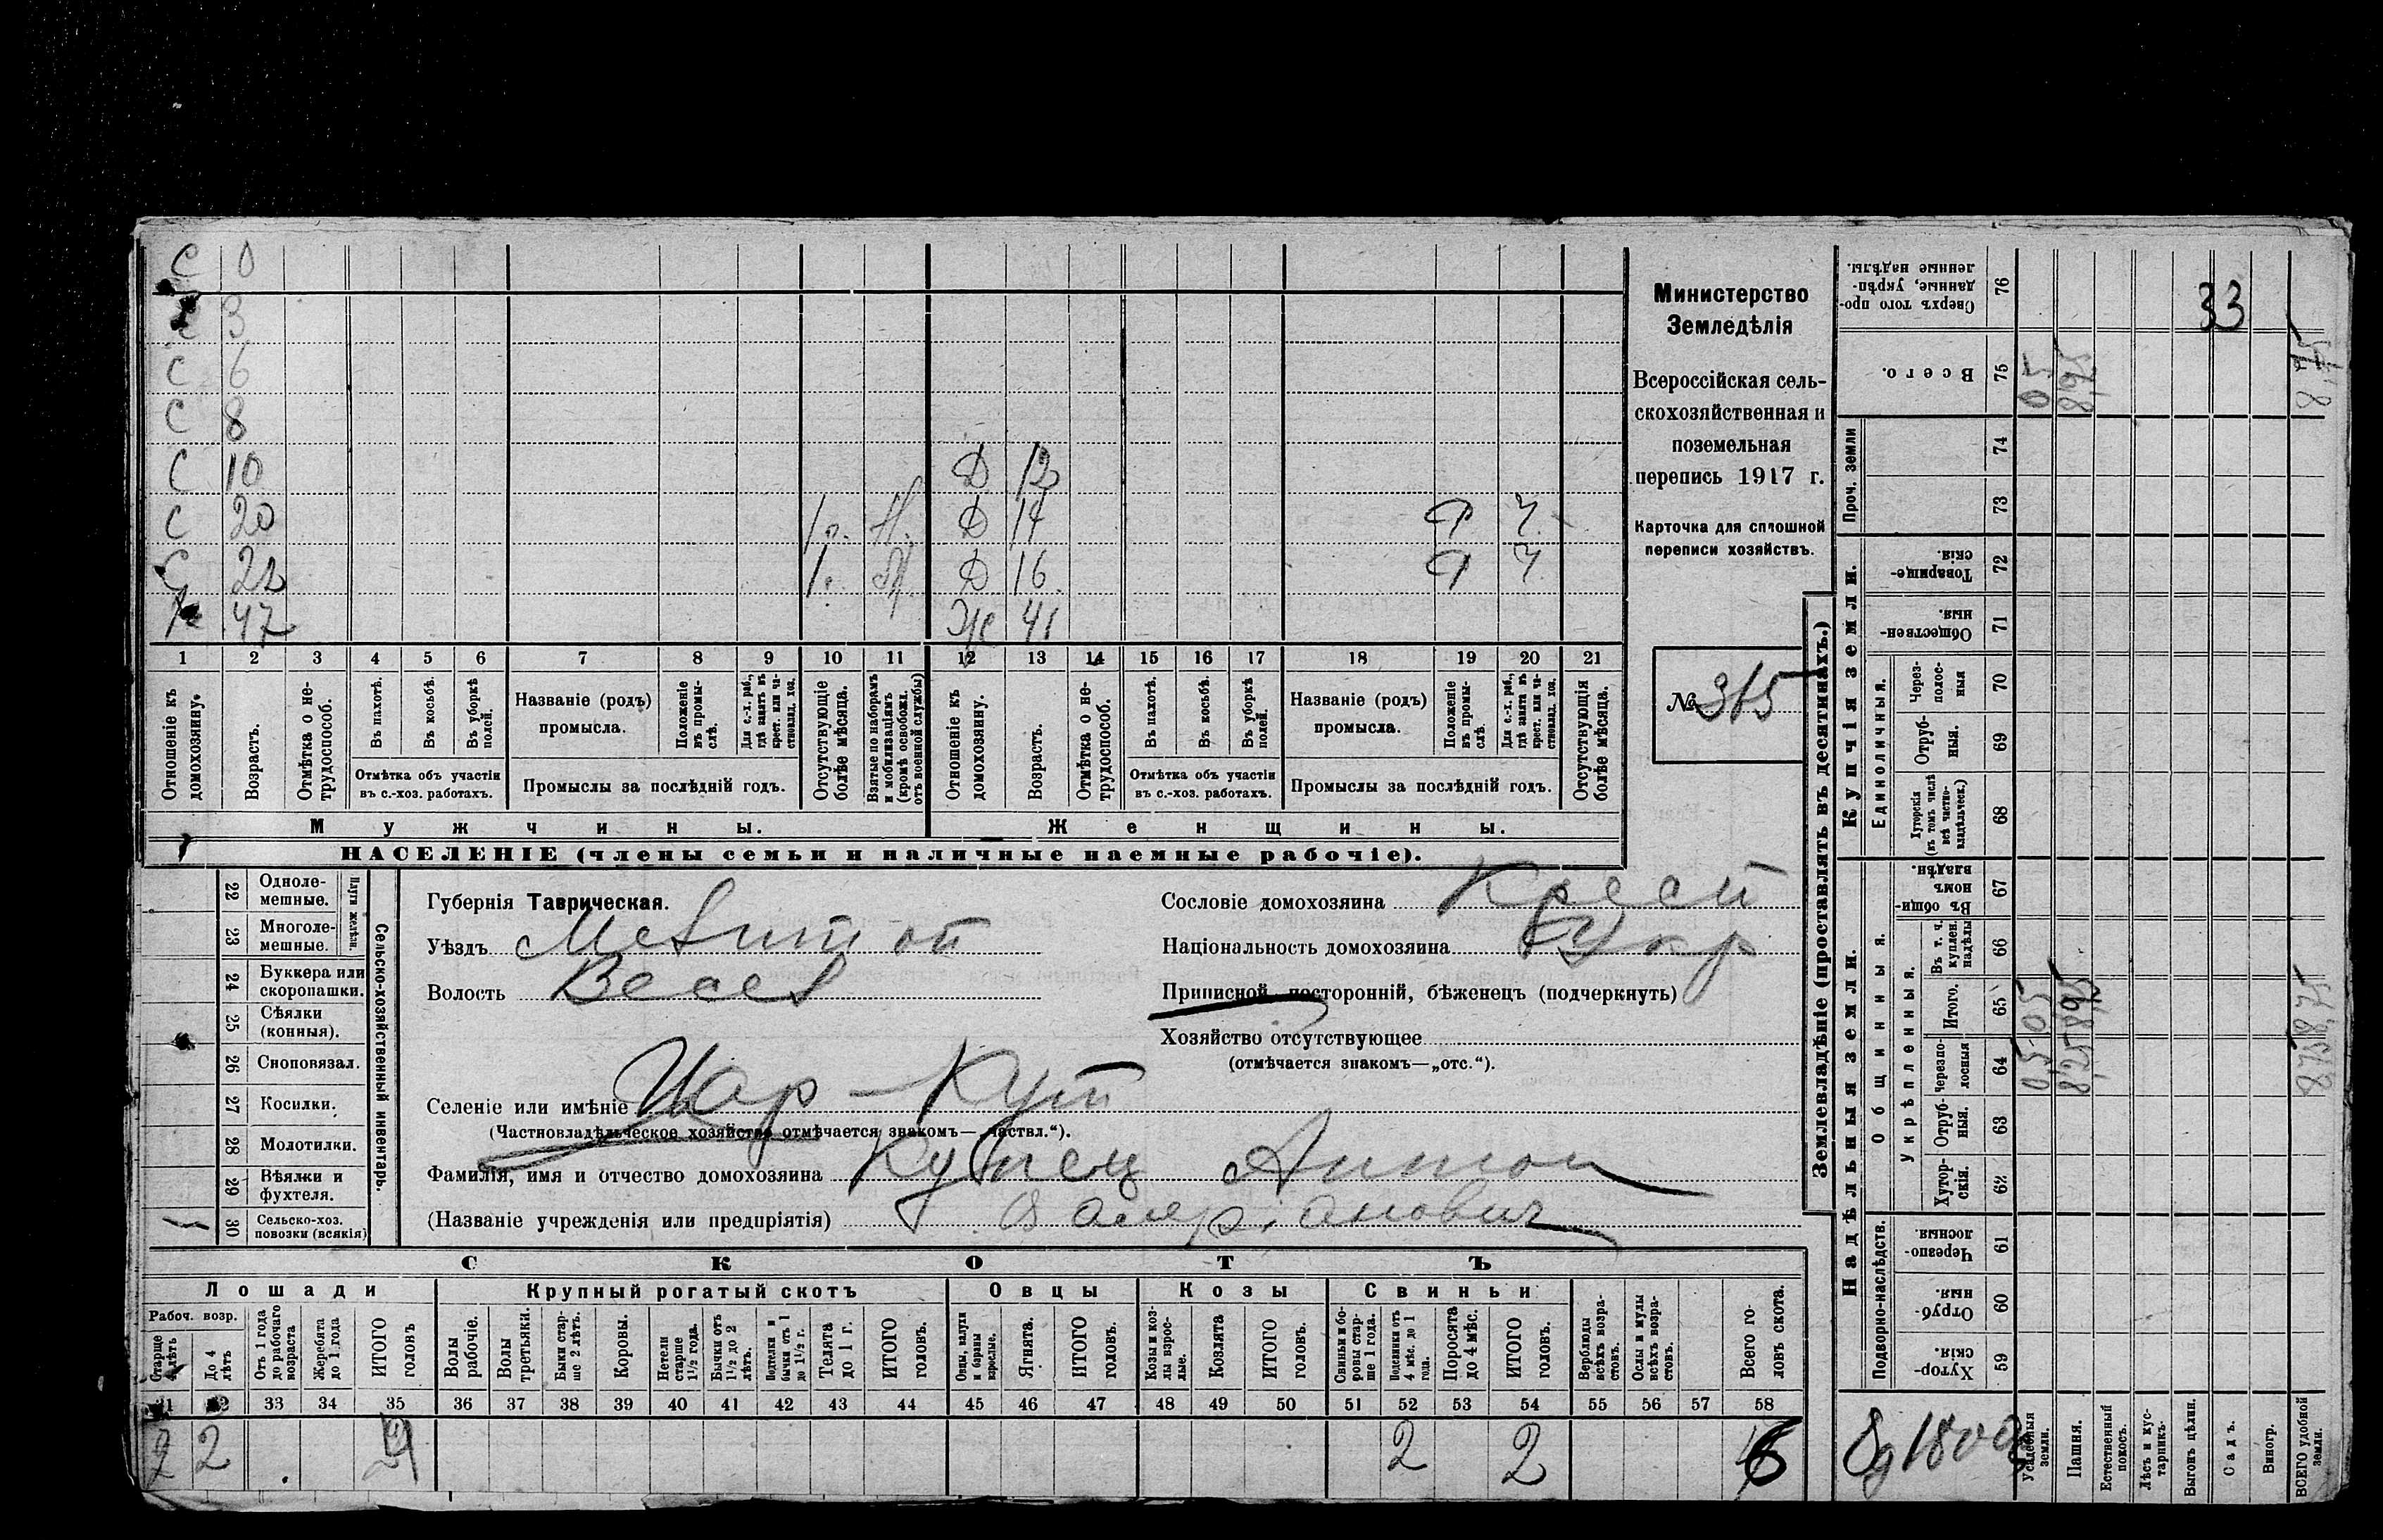 С 0
С 3
С 6
С 8
С 10 Д 12
С 20 1 г. Д 14 Ч
С 22 1 г. Д 16 Ч
47 Же 41
1 2 3 4 5 6 7 8 9 10 11 12 13 14 15 16 17 18 19 20 21
Отношеніе къ домохозяину.
Возрастъ.
Отмѣтка о не-трудоспособ.
Въ пахотѣ.
Въ косьбѣ.
Въ уборкѣ полей.
Отмѣтка объ участіи
въ с.-хоз. работахъ.
Названіе (родъ)
промысла.
Положеніе въ промы-слѣ.
Для с.-х. раб., гдѣ занятъ въ крест. или ча-стновлад. хоз.
Промыслы за послѣдній годъ.
Отсутствующіе болѣе мѣсяца.
Взятые по наборамъ и мобилизаціямъ (кромѣ освобожд. отъ военной службы)
Отношеніе къ домохозяину.
Возрастъ.
Отмѣтка о не-трудоспособ.
Въ пахотѣ.
Въ косьбѣ.
Въ уборкѣ полей.
Отмѣтка объ участіи
въ с.-хоз. работахъ.
Названіе (родъ)
промысла.
Положеніе въ промы-слѣ.
Для с.-х. раб., гдѣ занята въ крест. или ча-стновлад. хоз.
Промыслы за послѣдній годъ.
Отсутствующія болѣе мѣсяца.
Мужчины.
Женщины.
НАСЕЛЕНІЕ (члены семьи и наличные наемные рабочіе).
Министерство
Земледѣлія
Всероссійская сель-
скохозяйственная и
поземельная
перепись 1917 г.
Карточка для сплошной
переписи хозяйствъ.
№ 365
22 Одноле-мешные.
23 Многоле-мешные.
Плуги желѣзн.
24 Буккера или скоропашки.
25 Сѣялки (конныя).
26 Сноповязал.
27 Косилки.
28 Молотилки.
29 Вѣялки и фухтеля.
30 Сельско-хоз. повозки (всякія)
Сельско-хозяйственный инвентарь.
Губернія Таврическая.
Уѣздъ Мелитоп
Волость Весел
Селеніе или имѣніе Цар-Кут
(Частновладѣльческое хозяйство отмѣчается знакомъ—„частвл.“).
Фамилія, имя и отчество домохозяина Купец Антон
(Названіе учрежденія или предпріятія) Валеріанович
Сословіе домохозяина Крест
Національность домохозяина Укр
Приписной, посторонній, бѣженецъ (подчеркнуть)
Хозяйство отсутствующее
(отмѣчается знакомъ—„отс.“).
СКОТЪ
Лошади
Рабоч. возр.
Старше 4 лѣтъ
До 4 лѣтъ
Отъ 1 года до рабочаго возраста
Жеребята до 1 года
ИТОГО головъ
Крупный рогатый скотъ
Волы рабочіе.
Волы третьяки.
Быки стар-ше 2 лѣтъ.
Коровы.
Нетели старше 1½ года.
Бычки отъ 1½ до 2 лѣтъ.
Подтелки и бычки отъ 1 до 1½ г.
Телята до 1 г.
ИТОГО головъ.
Овцы
Овцы, валухи и бараны взрослые.
Ягнята.
ИТОГО головъ.
Козы
Козы и коз-лы взрос-лые.
Козлята
ИТОГО головъ.
Свиньи
Свиньи и бо-ровы стар-ше 1 года.
Подсвинки отъ 4 мѣс. до 1 года.
Поросята до 4 мѣс.
ИТОГО головъ.
Верблюды всѣхъ возра-стовъ.
Ослы и мулы всѣхъ возра-стовъ.
Всего го-ловъ скота.
31 32 33 34 35 36 37 38 39 40 41 42 43 44 45 46 47 48 49 50 51 52 53 54 55 56 57 58
2 2 4 2 2 6
Землевладѣніе (проставлять въ десятинахъ.)
Купчія земли.
Надѣльныя земли.
Сверхъ того про-данные, укрѣп-ленные надѣлы. 76 33
Всего. 75 05 8,25 8,75
Проч. земли
74
73
Товарище-скія 72
Обществен-ныя. 71
Единоличныя.
Через-полос-ныя 70
Отруб-ныя. 69
Хуторскія (въ томъ числѣ всѣ частно-владѣльческ.) 68
Общинныя.
Въ общин-номъ владѣн. 67
Укрѣпленныя.
Въ т. ч. куплен. надѣлы 66
Итого. 65 05 8,25 8,75
Черезпо-лосныя 64 0,5 8,25 8,75
Отруб-ныя. 63
Хутор-скія. 62
Подворно-наслѣдств.
Черезпо-лосныя 61
Отруб-ныя. 60
Хутор-скія. 59
Усадебныя земли.
Пашня.
Естественный покосъ.
Лѣсъ и кус-тарникъ.
Выгонъ цѣлин.
Садъ.
Виногр.
ВСЕГО удобной земли.